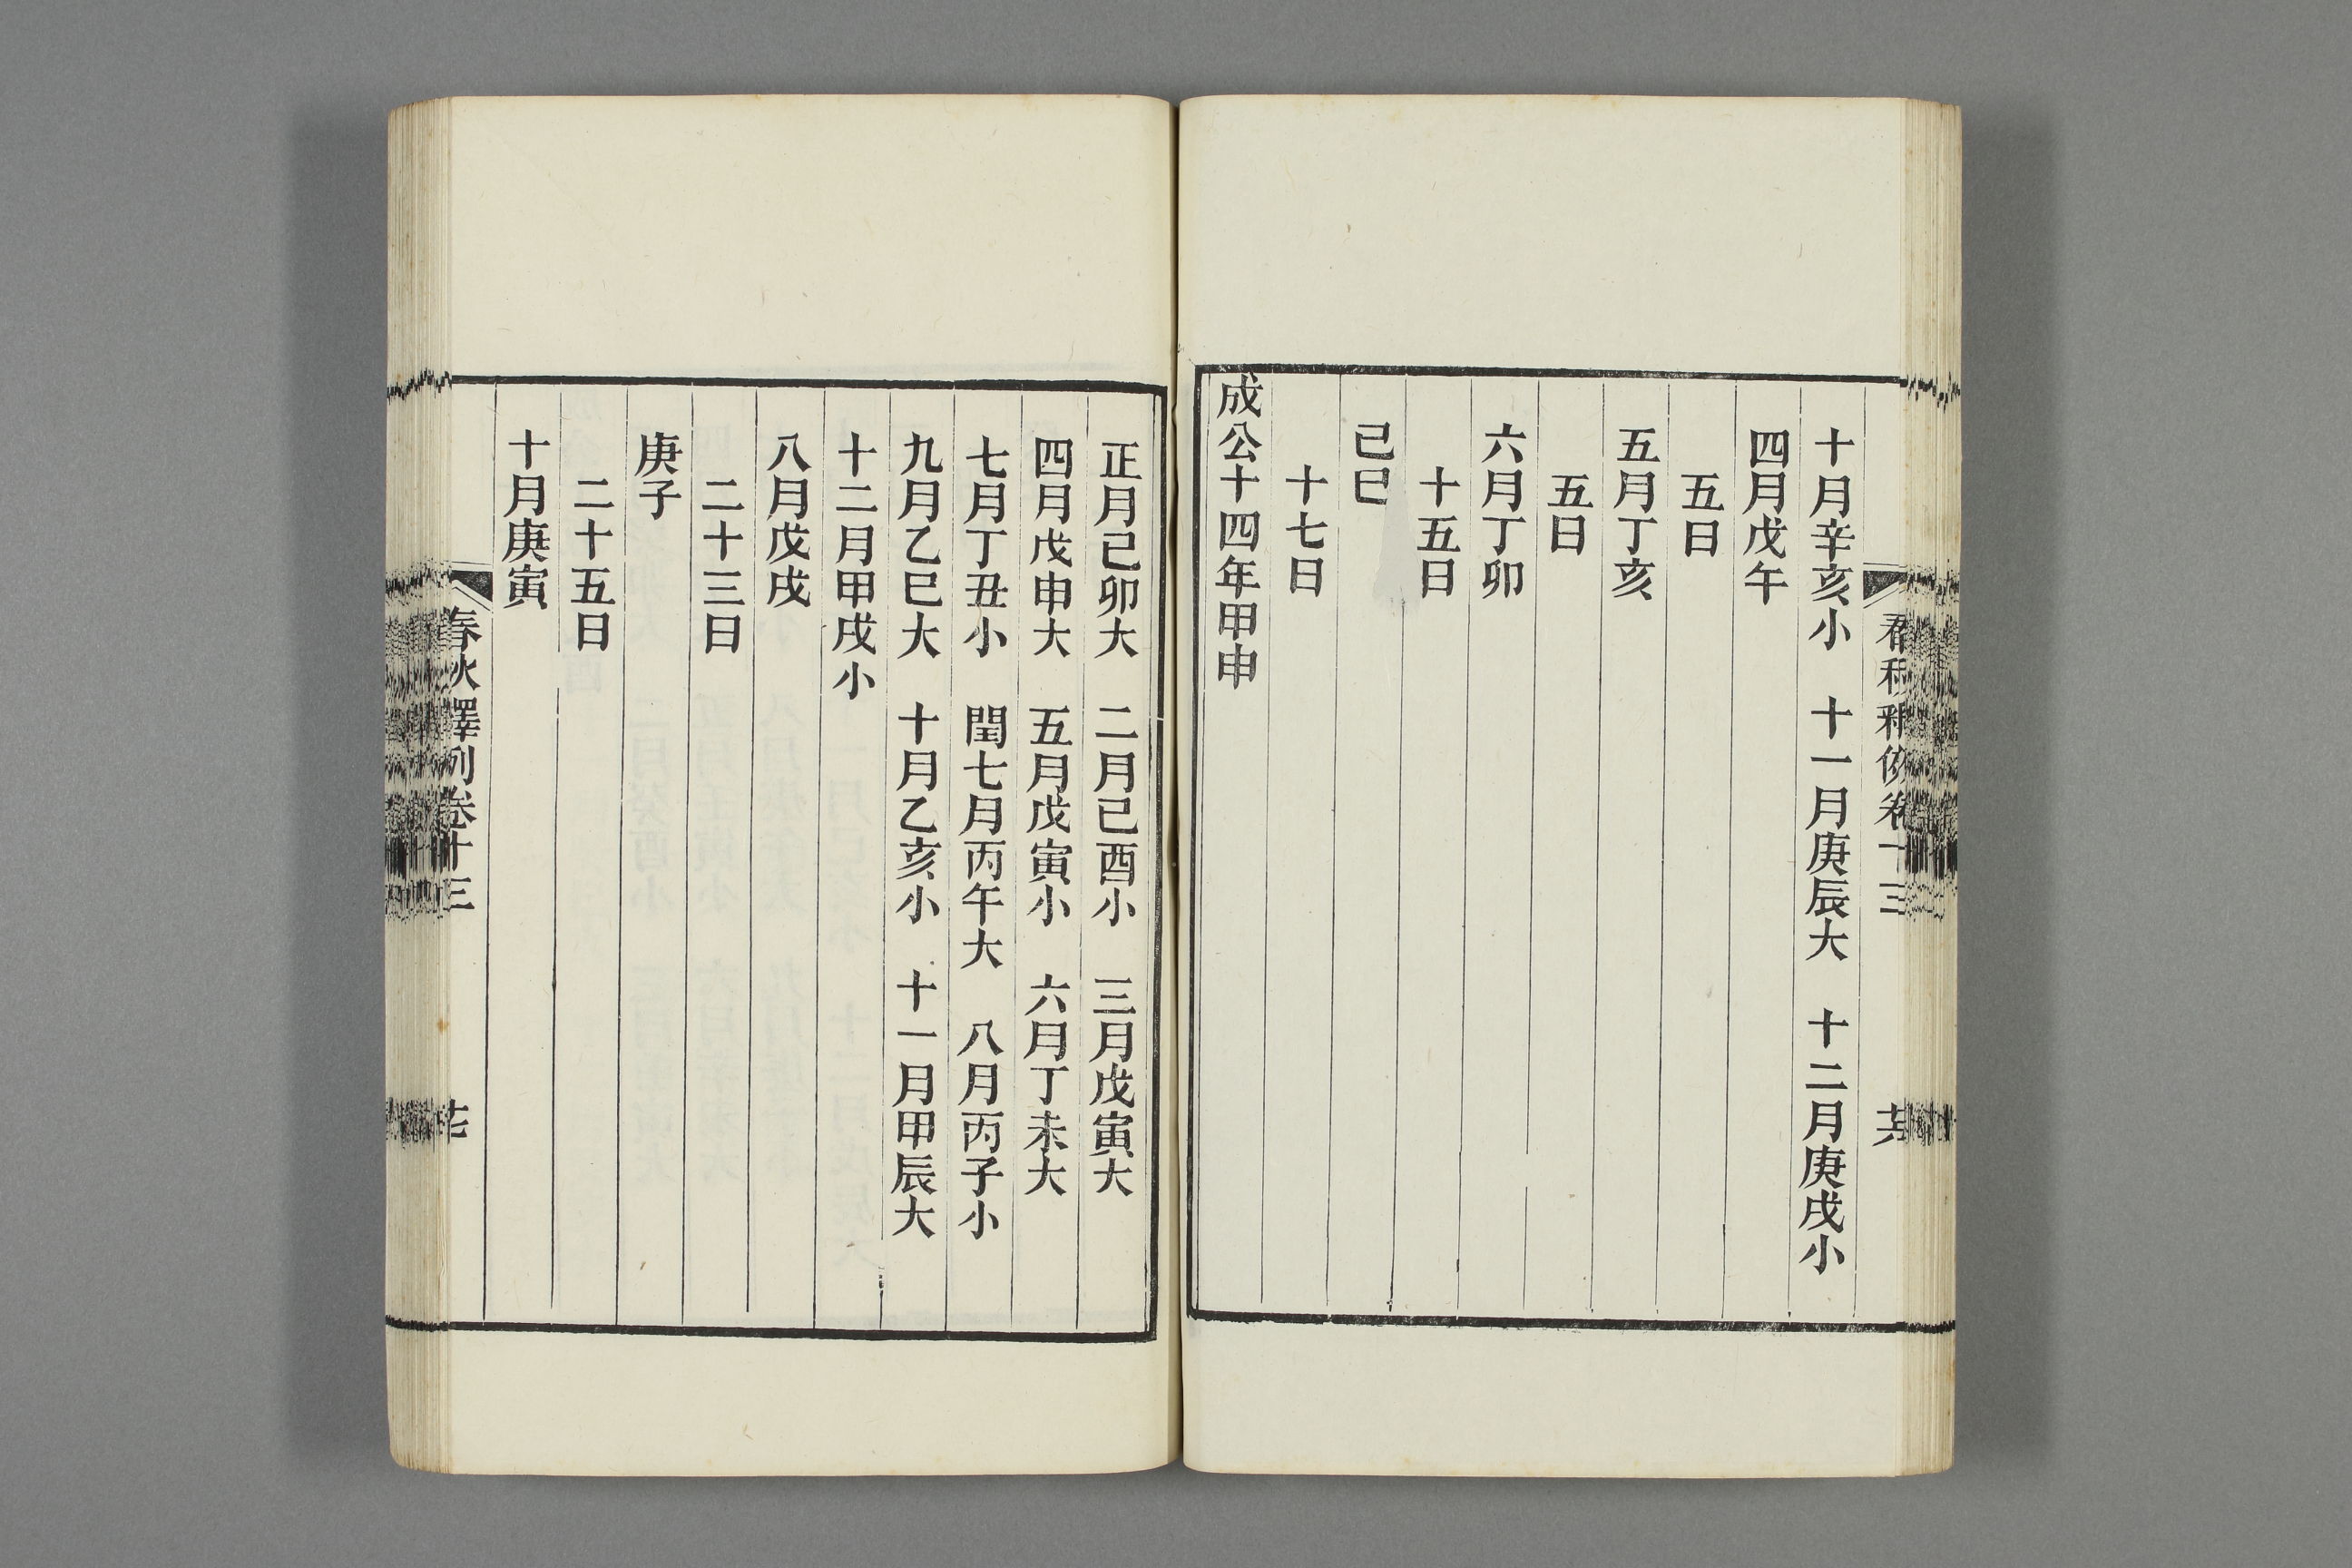 十月辛亥小　十一月庚辰大　十二月庚戌小
四月戊午
五日
五月丁亥
五日
六月丁卯
十五日
己巳
十七日
成公十四年甲申
正月己卯大　二月己酉小　三月戊寅大
四月戊申大　五月戊寅小　六月丁未大
七月丁丑小　閏七月丙午大　八月丙子小
九月乙巳大　十月乙亥小　十一月甲辰大
十二月甲戌小
八月戊戌
二十三日
庚子
二十五日
十月庚寅
春秋釋例卷十三